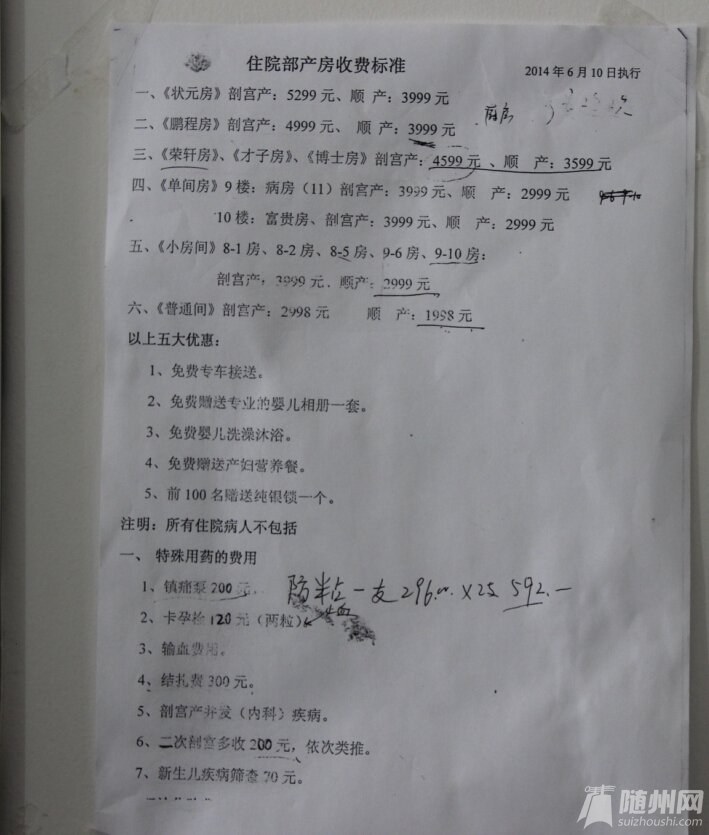 住院部产房收费标准
2014年6月10日执行
一、《状元房》剖宫产：5299元、顺 产：3999元
二、《鹏程房》剖宫产：4999元、 顺 产：3999元
三、《荣轩房》、《才子房》、《博士房》剖宫产：4599元、顺 产：3599元
四、《单间房》9楼：病房（11）剖宫产：3999元、顺 产：2999元
10楼：富贵房、剖宫产：3999元、顺 产：2999元
五、《小房间》8-1房、8-2房、8-5房、9-6房、9-10房：
剖宫产：3999元、顺产：2999元
六、《普通间》剖宫产：2998元 顺 产：1998元
以上五大优惠：
1、免费专车接送。
2、免费赠送专业的婴儿相册一套。
3、免费婴儿洗澡沐浴。
4、免费赠送产妇营养餐。
5、前100名赠送纯银锁一个。
注明：所有住院病人不包括
一、 特殊用药的费用
1、镇痛泵200元。
防 一支296.00.×2支 592.一
2、卡孕栓120元（两粒）
3、输血费用。
4、结扎费300元。
5、剖宫产并发（内科）疾病。
6、二次剖宫多收200元，依次类推。
7、新生儿疾病筛查70元。
随州网
suizhoushi.com